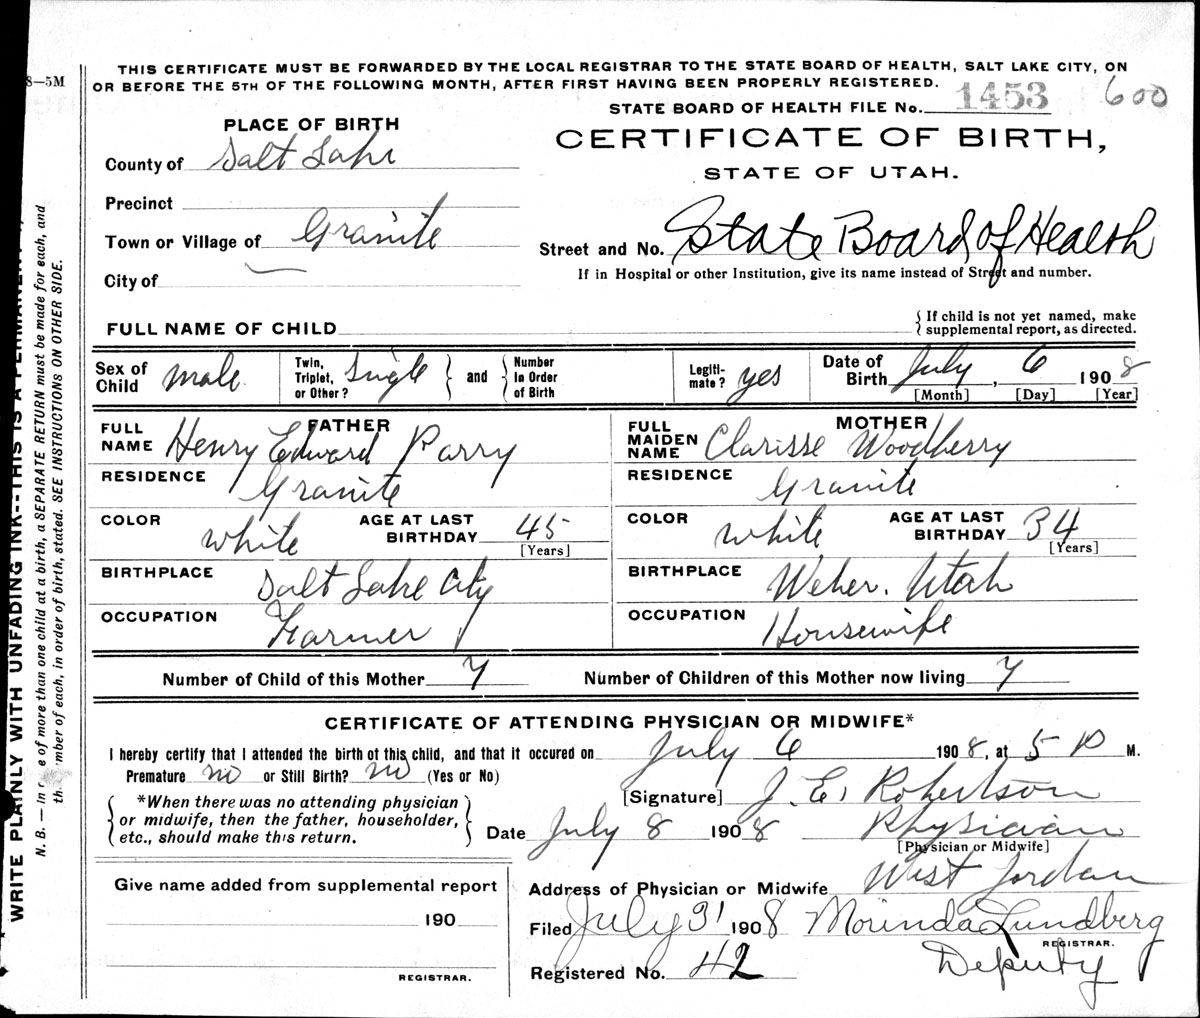 8—5M
THIS CERTIFICATE MUST BE FORWARDED BY THE LOCAL REGISTRAR TO THE STATE BOARD OF HEALTH, SALT LAKE CITY, ON
OR BEFORE THE 5TH OF THE FOLLOWING MONTH, AFTER FIRST HAVING BEEN PROPERLY REGISTERED.
STATE BOARD OF HEALTH FILE No. 1453 600
PLACE OF BIRTH
CERTIFICATE OF BIRTH,
STATE OF UTAH.
County of Salt Lake
Precinct
Town or Village of Granite
City of
Street and No. State Board of Health
If in Hospital or other Institution, give its name instead of Street and number.
FULL NAME OF CHILD
{ If child is not yet named, make
supplemental report, as directed.
Sex of Child male
Twin, Triplet, or Other? Single } and { Number In Order of Birth
Legiti- mate? yes
Date of Birth July, 6 1908
[Month] [Day] [Year]
FATHER
FULL NAME Henry Edward Parry
RESIDENCE Granite
COLOR white AGE AT LAST BIRTHDAY 45
[Years]
BIRTHPLACE Salt Lake City
OCCUPATION Farmer
MOTHER
FULL MAIDEN NAME Clarisse Woodberry
RESIDENCE Granite
COLOR white AGE AT LAST BIRTHDAY 34
[Years]
BIRTHPLACE Weber. Utah
OCCUPATION Housewife
Number of Child of this Mother 7 Number of Children of this Mother now living 7
CERTIFICATE OF ATTENDING PHYSICIAN OR MIDWIFE*
I hereby certify that I attended the birth of this child, and that it occured on July 6 1908, at 5 P M.
Premature no or Still Birth? no (Yes or No)
[Signature] J. E. Robertson
{ *When there was no attending physician
or midwife, then the father, householder,
etc., should make this return. }
Date July 8 1908 Physician
[Physician or Midwife]
Address of Physician or Midwife West Jordan
Give name added from supplemental report
190
REGISTRAR.
Filed July 31 1908 Morinda Lundberg
REGISTRAR.
Registered No. 42 Deputy
WRITE PLAINLY WITH UNFADING INK--THIS IS A PERMANENT
N. B. — In e of more than one child at a birth, a SEPARATE RETURN must be made for each, and
th mber of each, in order of birth, stated. SEE INSTRUCTIONS ON OTHER SIDE.